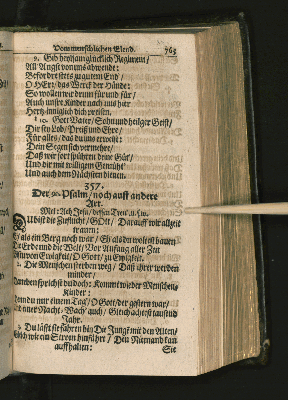 Vom menschlichen Elend. 765
9. Gib heylsamglücklich Regiment/
All Angst von uns abwende:
Befördre stets zu gutem End/
O HErr/ das Werck der Hände:
So wollen wir drumb für und für/
Auch unsre Kinder nach uns hier
Hertz-inniglich dich preisen.
10. Gott Vater/ Sohn und heilger Geist/
Dir sey Lob/ Preiß und Ehre/
Für alles/ das du uns erweist:
Dein Segen sich vermehre/
Daß wir fort spühren deine Güt/
Und dir mit willigem Gemüht
Und auch dem Nächsten dienen.
357.
Der 90. Psalm/ noch auff andere
Art.
Mel: Ach Jesu/ dessen Treu. u. s. w.
DU bist die Zuflucht/ GOtt/ Darauff wir allzeit
trauen:
Eh als ein Berg noch war/ Eh als du wollest bauen
Die Erde und die Welt/ Vor Anfang aller Zeit
Bistu von Ewigkeit/ O Gott/ zu Ewigkeit.
2. Die Menschen sterben weg/ Daß ihrer werden
minder/
Dann den sprichst du doch: Kommt wieder Menschen-
Kinder:
Denn du nur einem Tag/ O Gott/ der gestern war/
Und einer Nacht-Wach auch/ Gleich achtest tausend
Jahr.
3. Du lässt sie fahren hin Die Jungē mit den Alten/
Gleich wie ein Strom hinfährt/ Den Niemand kan
auffhalten:
Sie